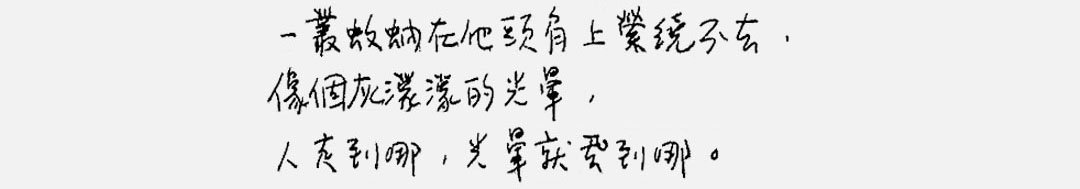 一叢蚊蚋在他頭角上縈繞不去，
像個灰濛濛的光暈，
人走到哪，光暈就發到哪。